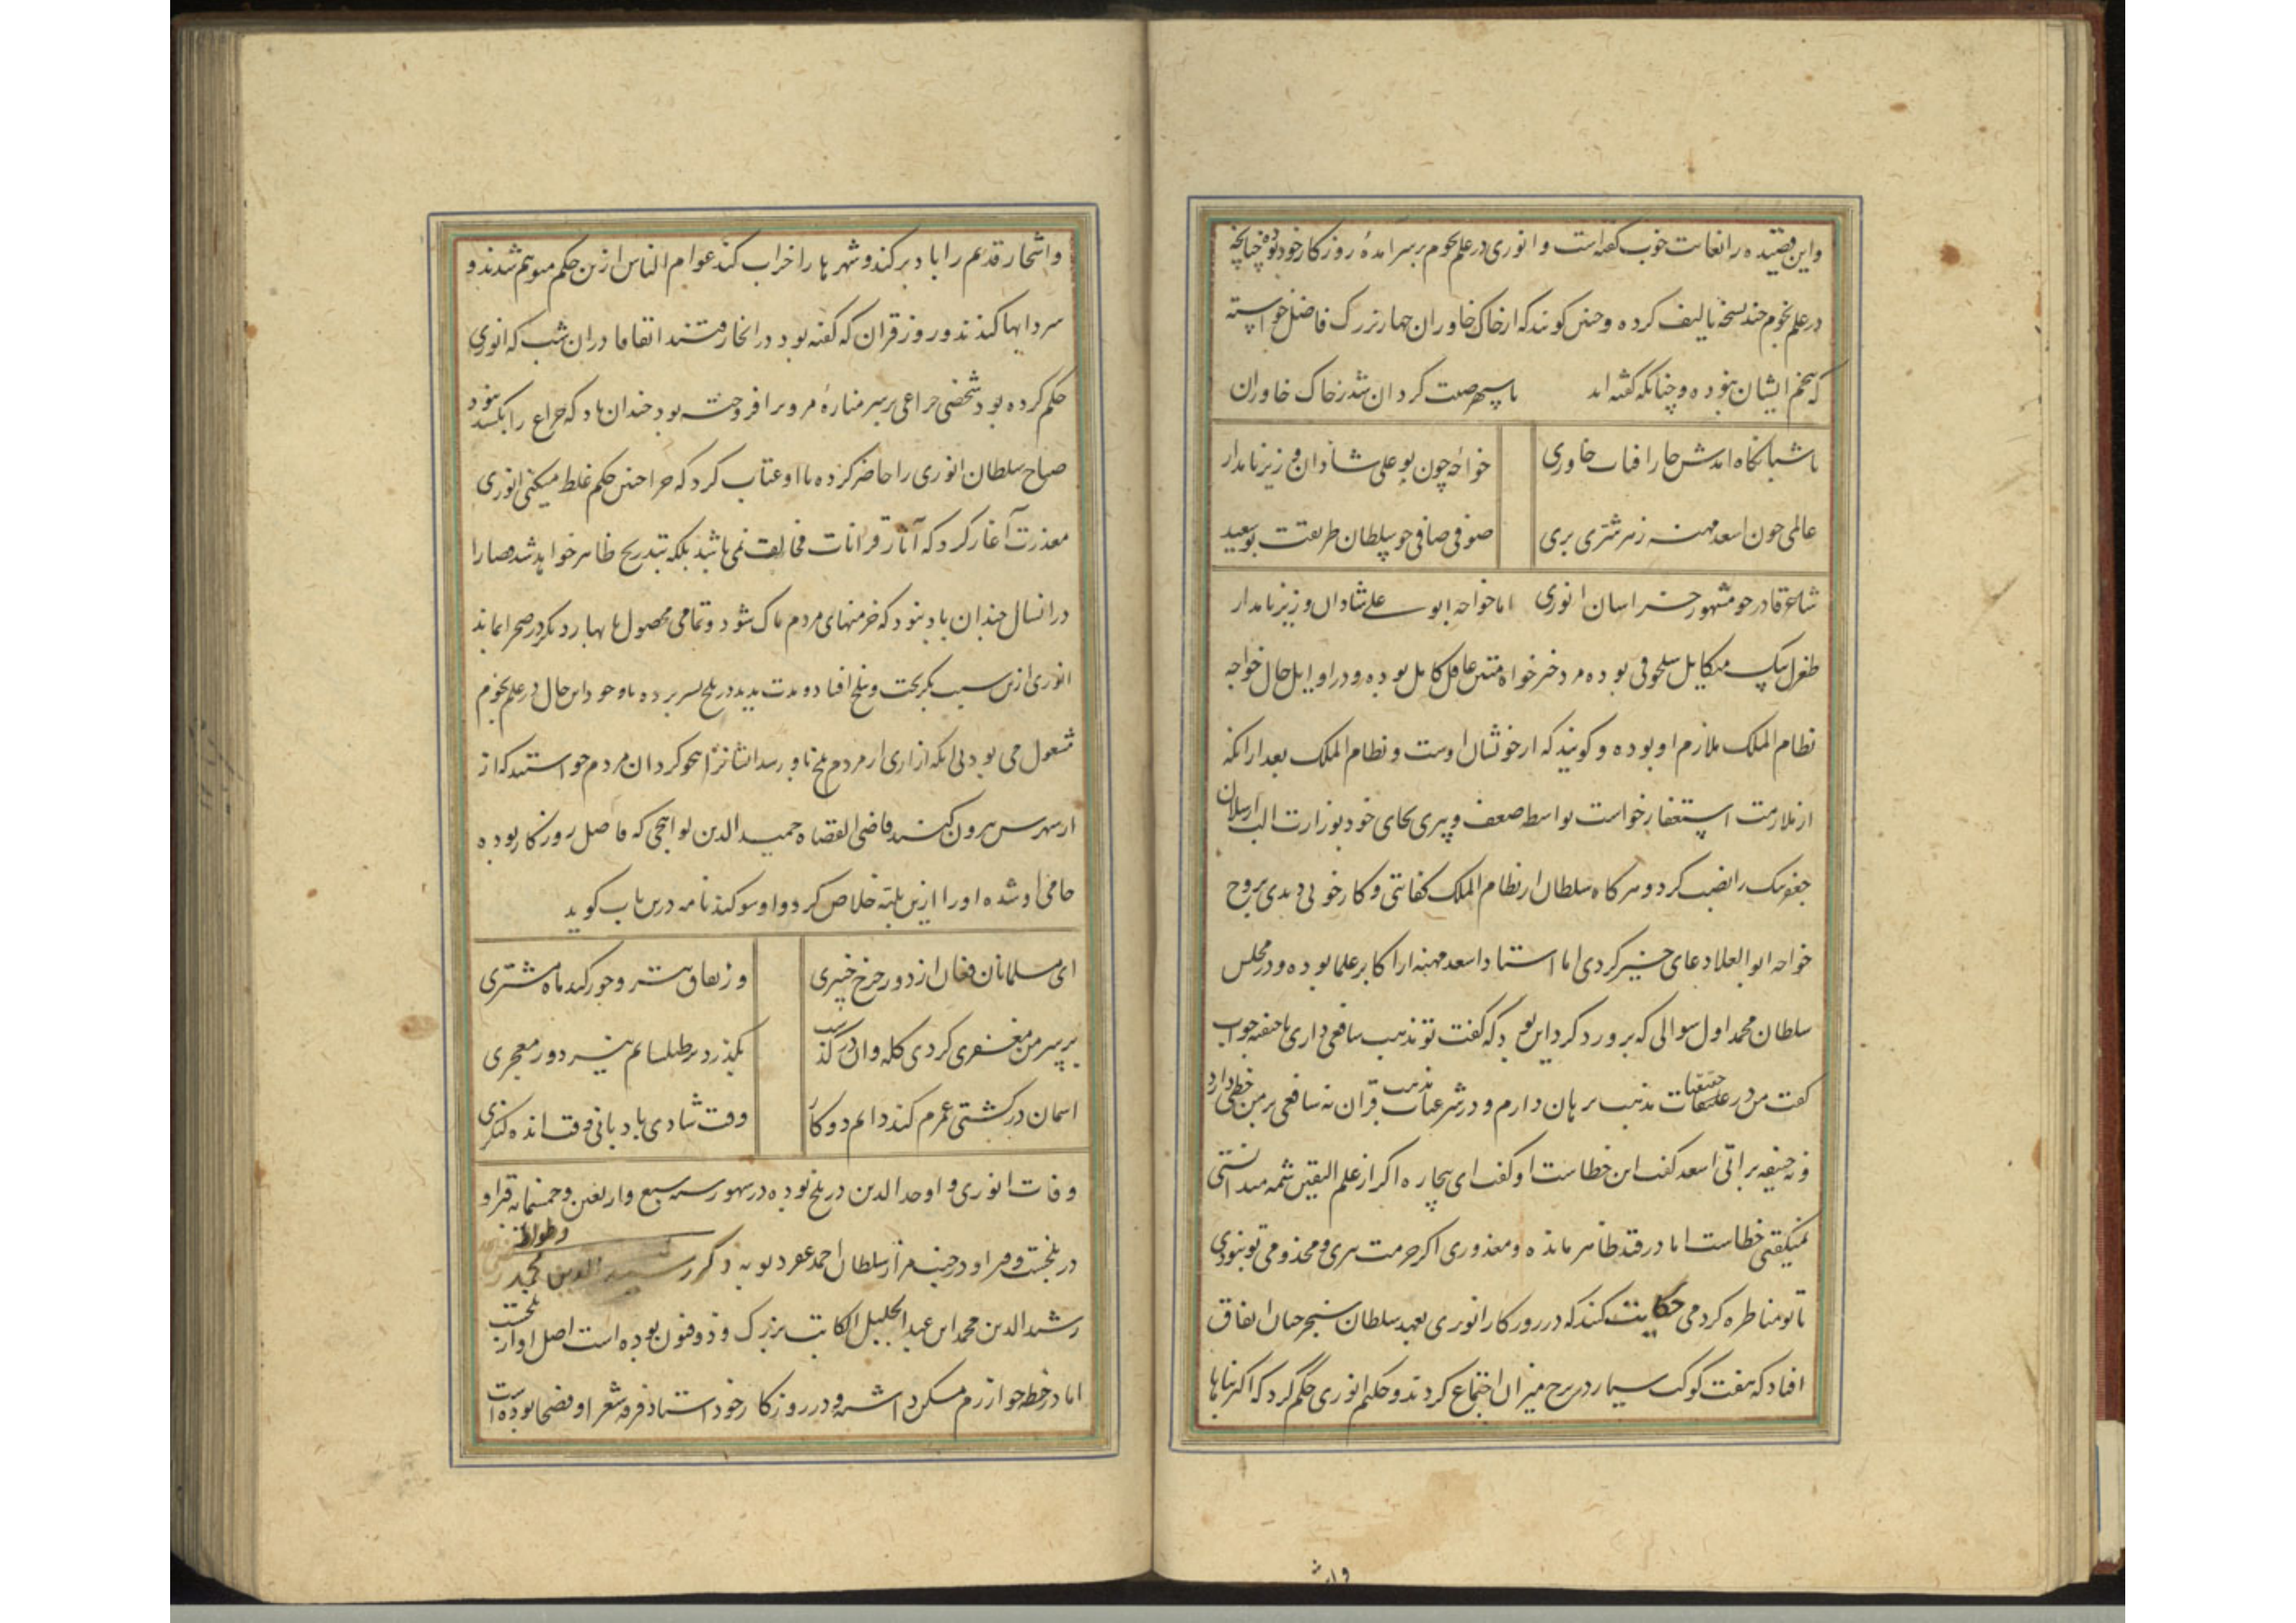 واین قصیده را بغایت خوب گفته است و انوری در علم نجوم بر سر آمدهٔ روزکار خود بوده چنانچه
در علم نجوم چند نسخه تالیف کرده و چنین کویند که از خاک خاوران چهار بزرگ فاضل خواسته
که پنجم ایشان نبوده و چنانکه گفته اند تا سپهر صیت کردان شد ز خاک خاوران
تا شبانکاه امدش چار افتاب خاوری خواجه چون بو علی شادان وزیر نامدار
عالمی چون اسعد مهنه ز هر شری بری صوفی صافی چو سلطان طریقت بو سعید
شاعر قادر چو مشهور خراسان انوری اما خواجه ابو علی شادان وزیر نامدار
طغرل بیک میکایل سلجوقی بوده مرد خیر خواه متین عاقل کامل بوده و در اوایل حال خواجه
نظام الملک ملازم او بوده و کویند که از خویشان اوست و نظام الملک بعد از انکه
از ملازمت استعفا خواست بواسطه ضعف و پیری بجای خود بوزارت الب ارسلان
جغر بیک را نصب کرد و هر کاه سلطان از نظام الملک کفایتی و کار خوبی دیدی بروح
خواجه ابو العلا دعای خیر کردی اما استاد اسعد مهنه از اکابر علما بوده و در مجلس
سلطان محمد اول سوالی که برو رد کرد این بود که گفت تو مذهب شافعی داری یا حنفیه جواب
کفت من در عقلیات مذهب برهان دارم و در شرعیات مذهب قران نه شافعی بر من خطی دارد
و نه حنیفه براتی اسعد گفت این خطاست او گفت ای بیچاره اکر از علم الیقین شمه میدانستی
نمیکفتی خطاست اما در قید ظاهر مانده و معذوری اکر حرمت پیری و مخدومی تو نبودی
با تو مناظره کردمی حکایت کنند که در روزکار انوری بعهد سلطان سنجر چنان اتفاق
افتاد که هفت کوکب سیار در برج میزان اجتماع کردند و حکیم انوری حکم کرد که اکثر بناها
واش
واشجار قدیم را باد بر کند و شهرها را خراب کند عوام الناس ازین حکم متوهم شدند و
سردابها کندند و روز قران که گفته بود در انجا رفتند اتفاقا در ان شب که انوری
حکم کرده بود شخصی چراغی بر سر منارهٔ مرو بر افروخته بود چندان باد که چراغ را بکشد نبود
صباح سلطان انوری را حاضر کرده با او عتاب کرد که چرا چنین حکم غلط میکنی انوری
معذرت آغاز کرد که آثار قرانات فی الوقت نمی باشد بلکه بتدریج ظاهر خواهد شد قضا را
در انسال چندان باد نبود که خرمنهای مردم پاک شود و تمامی محصولها بهار دیکر در صحرا بماند
انوری ازین سبب بگریخت و ببلخ افتاد و مدت مدید در بلخ بسر برده با وجود این حال در علم نجوم
مشغول می بود بی انکه ازاری از مردم بلخ باو رسد ایشانرا هجو کرد ان مردم خواستند که از
از شهرش بیرون کنند قاضی القضاه حمید الدین لوالجی که فاضل روزکار بوده
حامی او شده او را ازین بلیه خلاص کرد و او سوکند نامه درین باب کوید
ای مسلمانان فغان از دور چرخ چنبری وز نفاق تیر و جور کید ماه مشتری
بر سر من مغفری کردی کله وان در گذشت بکذرد بر طیلسانم نیز دور معجری
اسمان در کشتی عمرم کند دایم دو کار وقت شادی بادبانی وقت انده لنکری
وفات انوری و اوحد الدین در بلخ بوده در شهور سنه سبع واربعین وخمسمایه قبر او
در بلخست و قبر او در جنب مزار سلطان احمد خضرویه ذکر رشید الدین وطواط
رشید الدین محمد ابن عبد الجلیل الکاتب بزرگ و ذو فنون بوده است اصل او از بلخست
اما در خطه خوارزم مسکن داشته و در روزکار خود استاد فرقه شعرا و فصحا بوده است